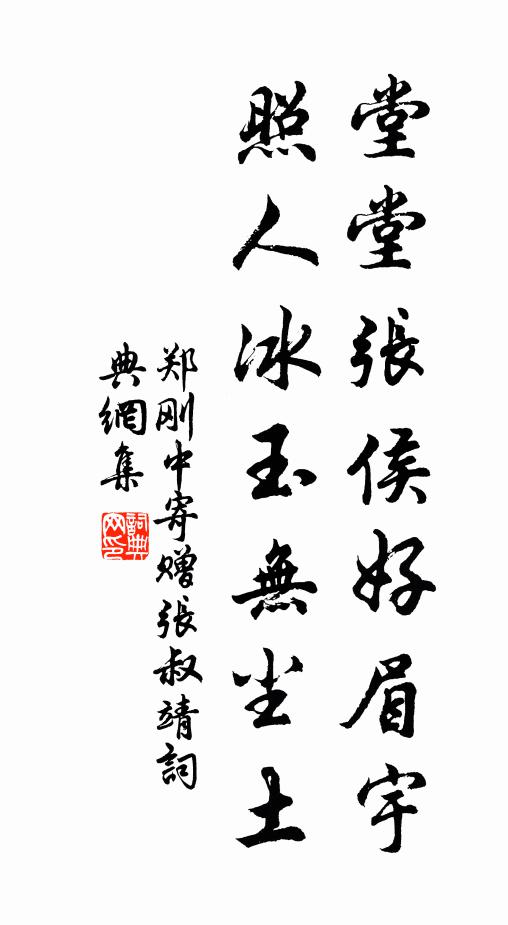 堂堂張侯好眉宇
照人冰玉無尘土
郑刚中寄赠張叔靖詞
典網集
詞典网印